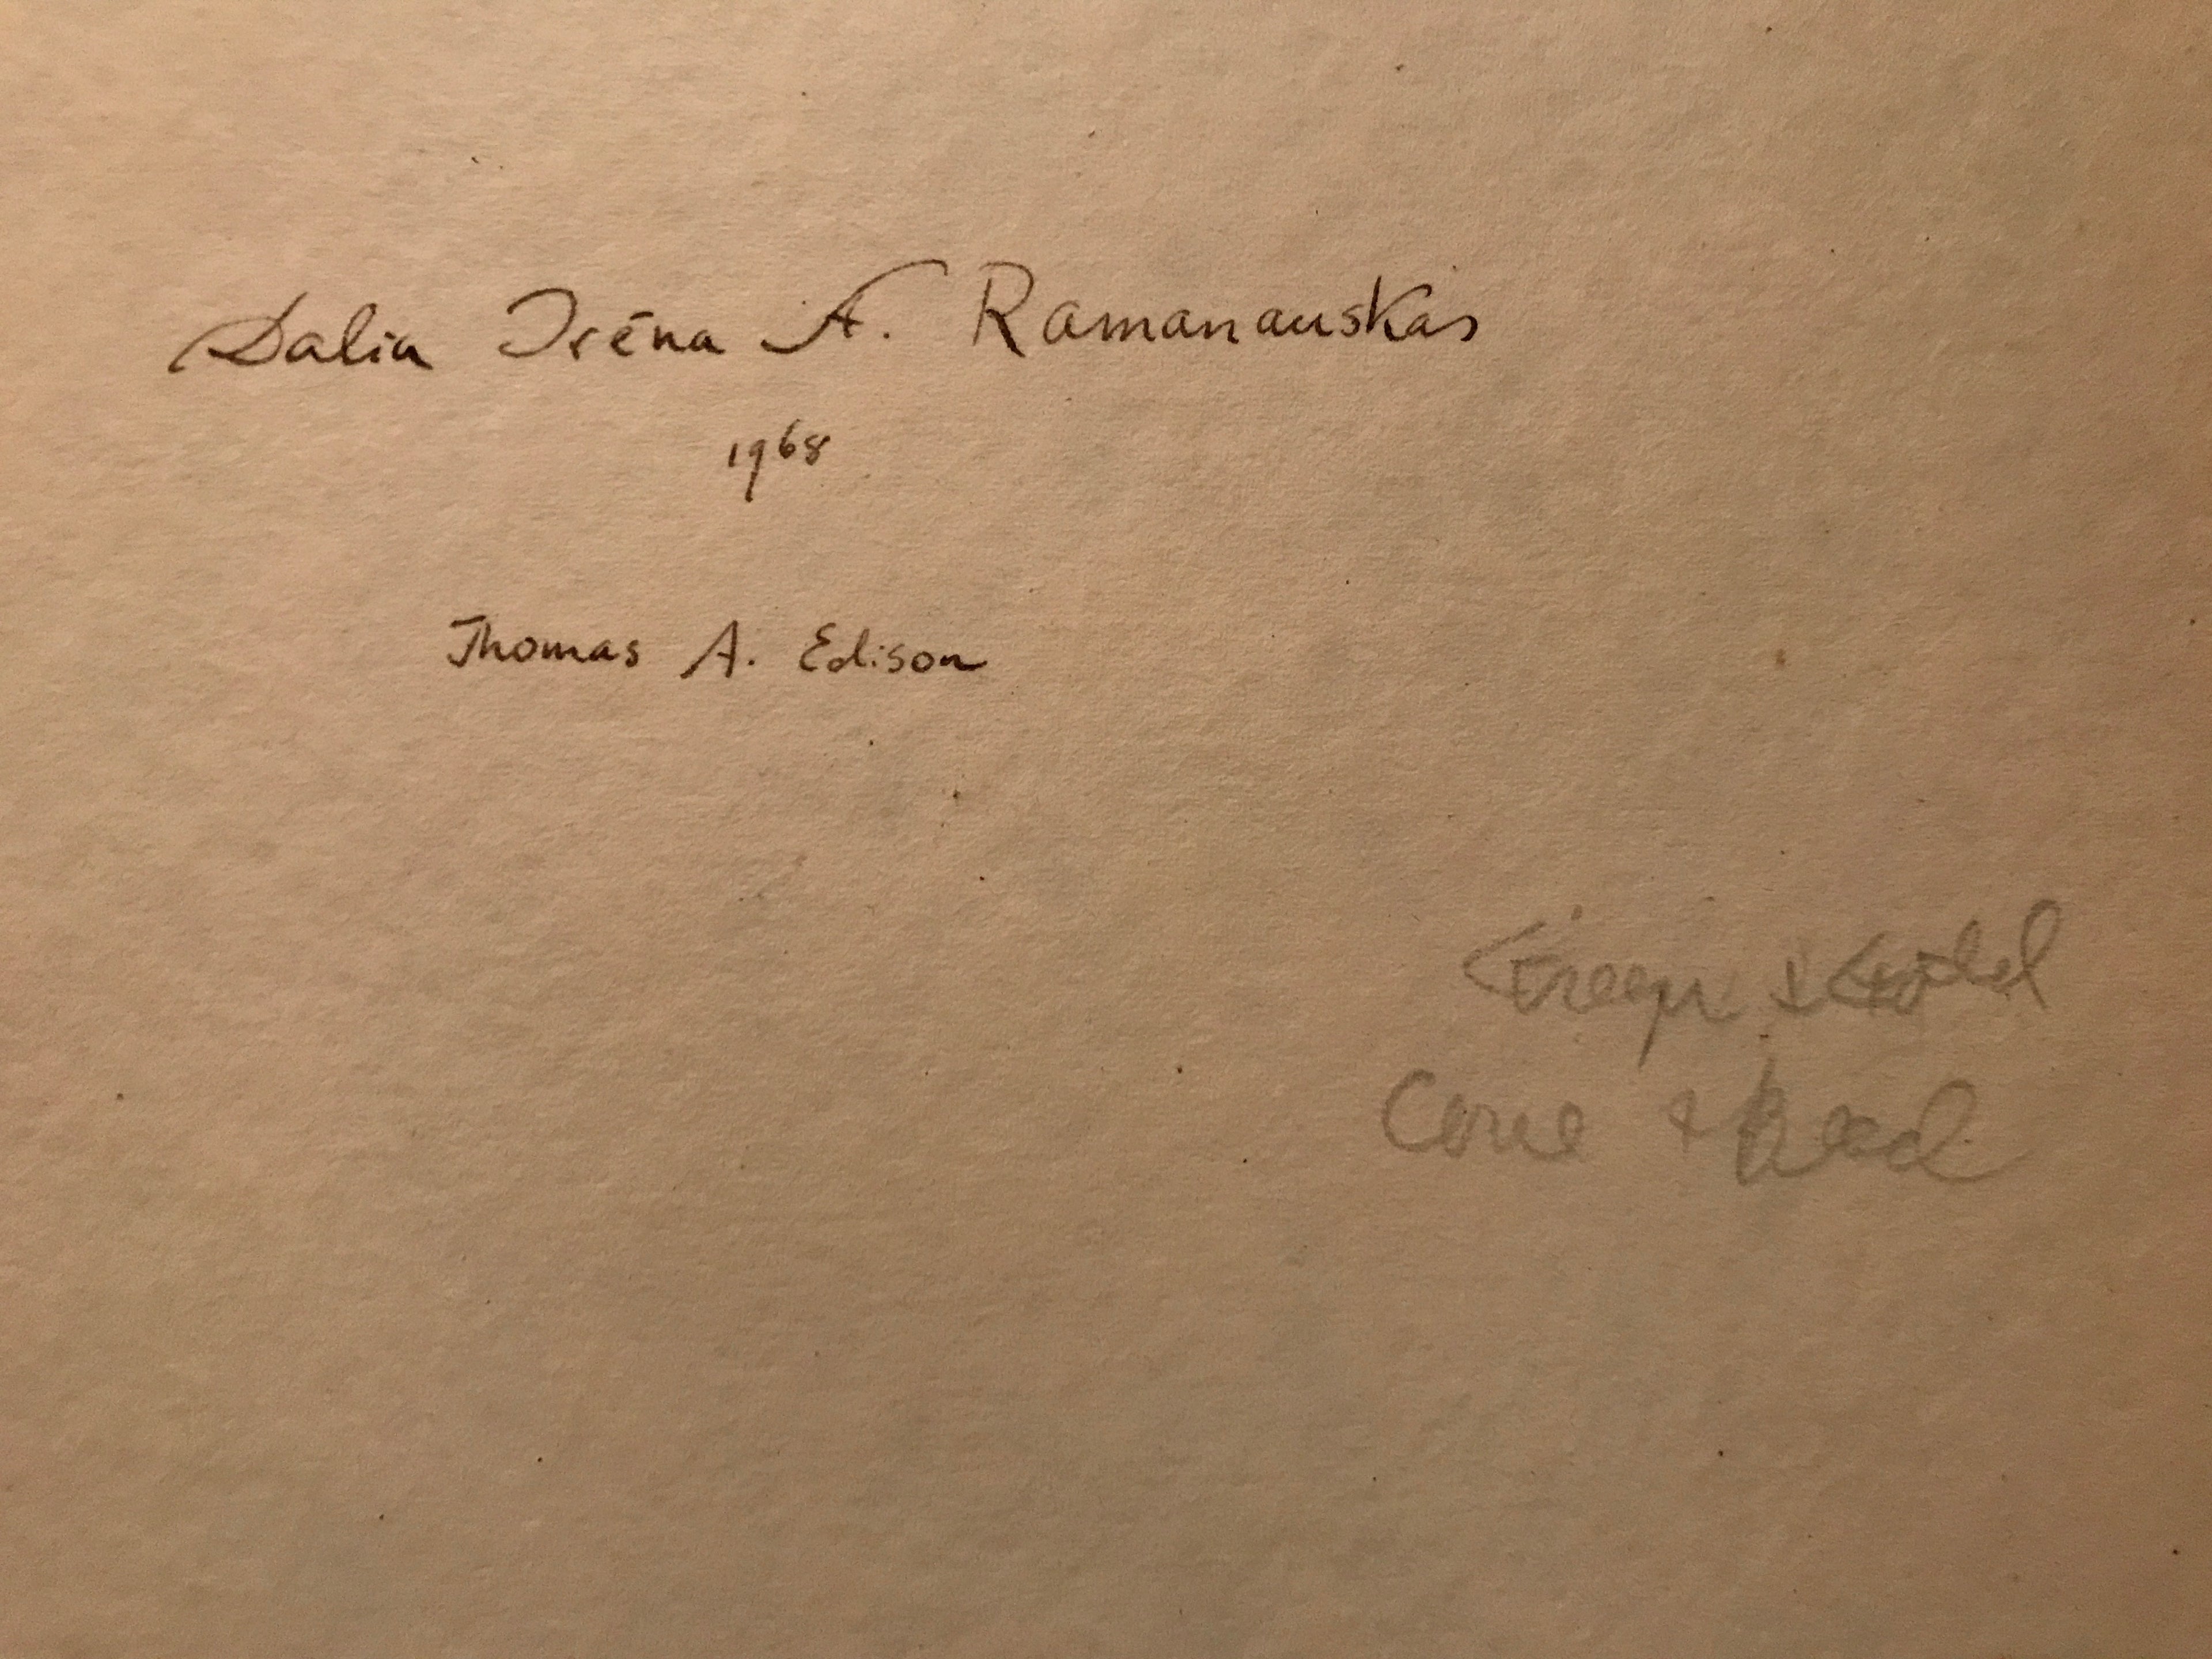 Dalia Irēna A. Ramanauskas
1968
Thomas A. Edison
Green & Gold
Cove & Bead